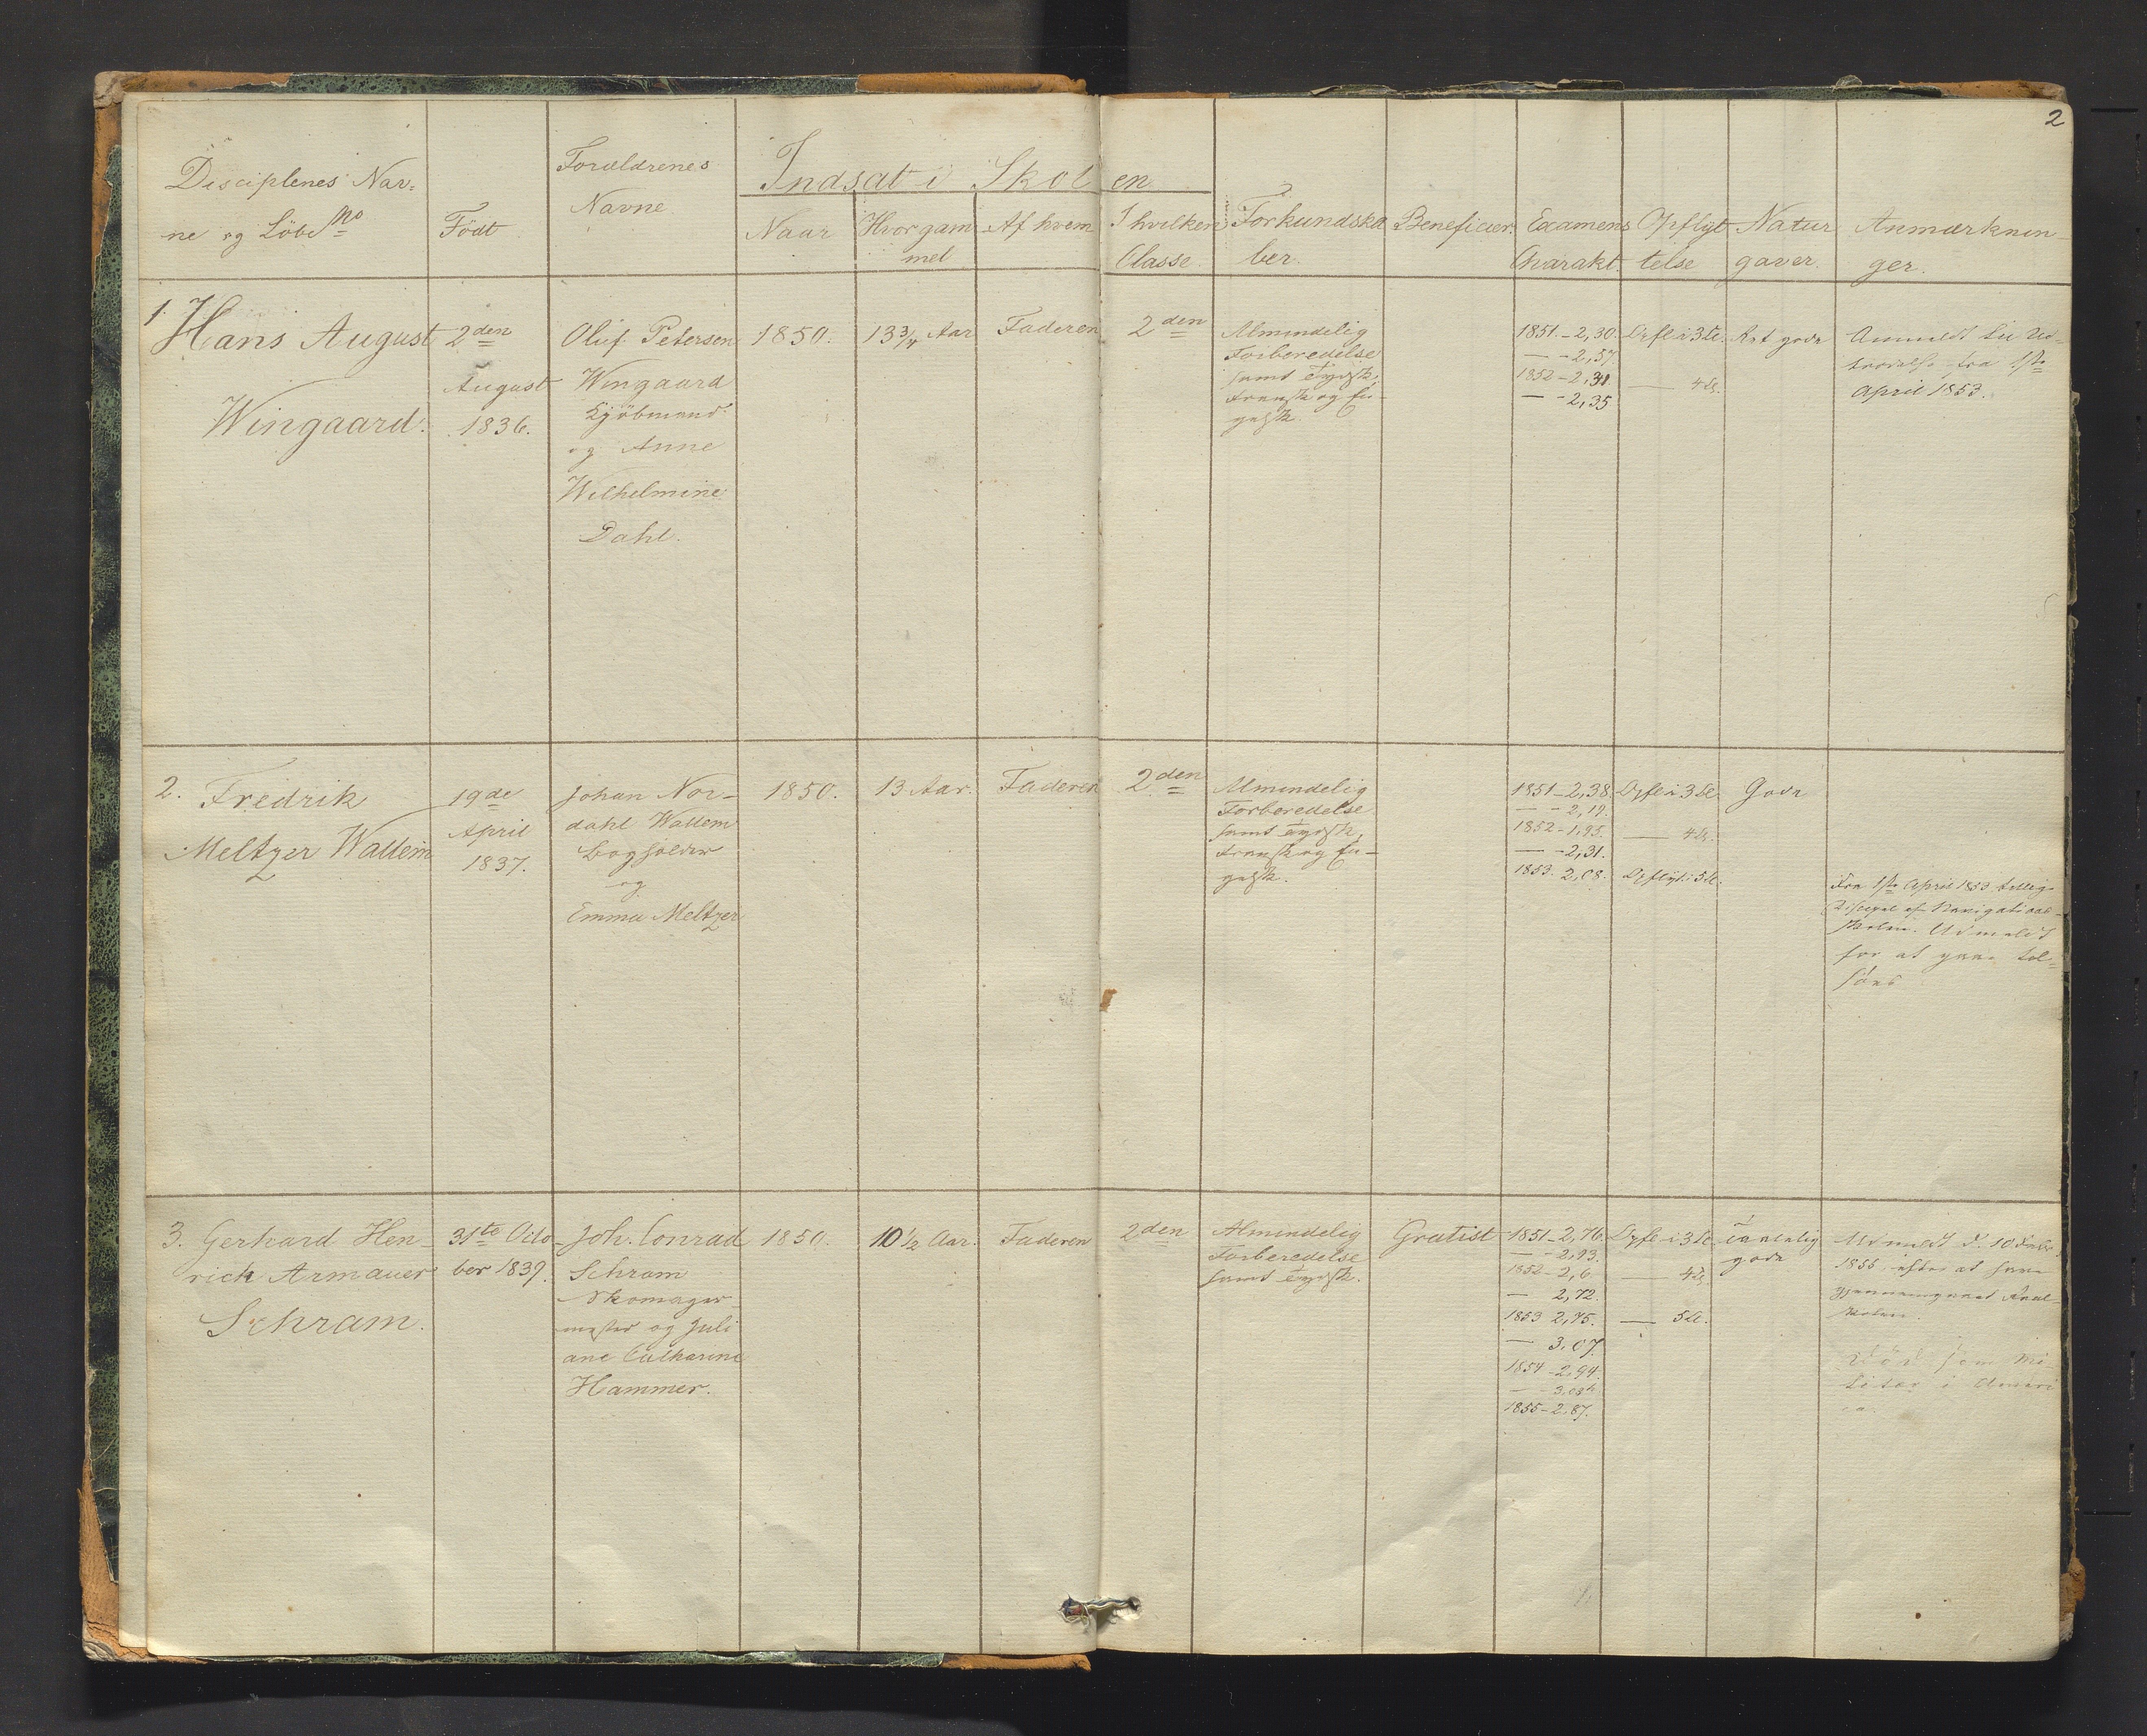 2
Disciplenes Nav=
ne og Löbe No
Födt
Forældrenes
Navne
Indsat i Skolen
Naar
Hvor gam
mel
Af hvem
I hvilken
Classe
Forkundska
ber.
Beneficier.
Examens
Charakt.
Opflyt
telse
Natur
gaver.
Anmærknin_
ger.
1.
Hans August
Wingaard.
2den
August
1836.
Oluf Petersen
Wingaard
Kjöbmand
og Anne
Wilhelmine
Dahl.
1850.
13 3/4 Aar
Faderen
2den
Almindelig
Forberedelse
samt Tydsk,
Fransk og En-
gelsk.
1851.-2,30.
— -2,57
1852-2,31.
— -2,35
Opfl i 3 Cl.
— 4 Cl.
Ret gode
Anmeldt til Ud=
trædelse fra 1ste
April 1853.
2. Fredrik
Meltzer Wallem
19de
April
1837.
Johan Nor-
dahl Wallem
Bogholder
og
Emma Meltzer
1850.
13 Aar.
Faderen
2den
Almindelig
Forberedelse
samt Tydsk,
Fransk og En-
gelsk.
1851-2,38.
— -2,19.
1852-1,95.
— -2,31.
1853. 2,08.
Opfl i 3 Cl.
— 4 Cl.
Opflyt. i 5 Cl.
Gode
Fra 1ste April 1853 tillige
Discipel af Navigations-
skolen. Udmeldt
for at gaae til=
søes
3. Gerhard Hen_
rich Armauer
Schram.
31te Octo_
ber 1839.
Joh. Conrad
Schram
Skomager_
mester og Juli
ane Catharine
Hammer.
1850.
10 1/2 Aar.
Faderen
2den
Almindelig
Forberedelse
samt Tydsk.
Gratist
1851-2,76.
— -2,93.
1852-2,6
— 2,72.
1853 2,75.
— 3,07.
1854-2,94.
— -3,03
1855-2,87.
Opfl i 3 Cl
— 4 Cl
— 5 Cl.
Temmelig
gode
Udmeldt d. 10
1855, efter at have
gjennemgaaet Real-
skolen.
Död som Mi-
litær i Ameri
ca.